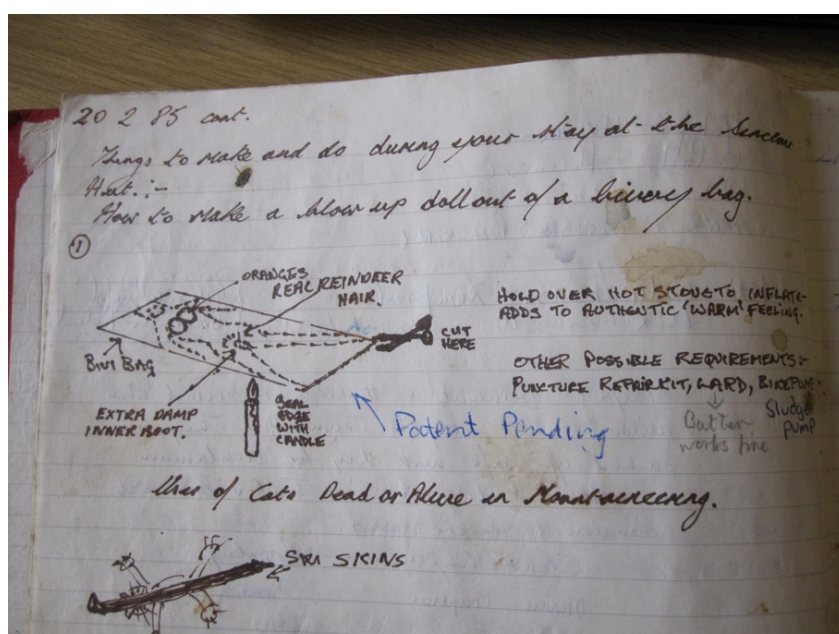 20 2 85 cont.
Things to make and do during your stay at the Sinclair
Hut. :-
How to make a blow up doll out of a bivvy bag.
①
ORANGES
REAL REINDEER
HAIR.
BIVI BAG
CUT
HERE
EXTRA DAMP
INNER BOOT.
SEAL
EDGE
WITH
CANDLE
HOLD OVER HOT STOVE TO INFLATE-
ADDS TO AUTHENTIC 'WARM' FEELING.
OTHER POSSIBLE REQUIREMENTS:-
PUNCTURE REPAIR KIT, LARD, BIKEPUMP
Butter
works fine
Sludge
pump
Patent Pending
Uses of Cats Dead or Alive in Mountaineering.
SKI SKINS